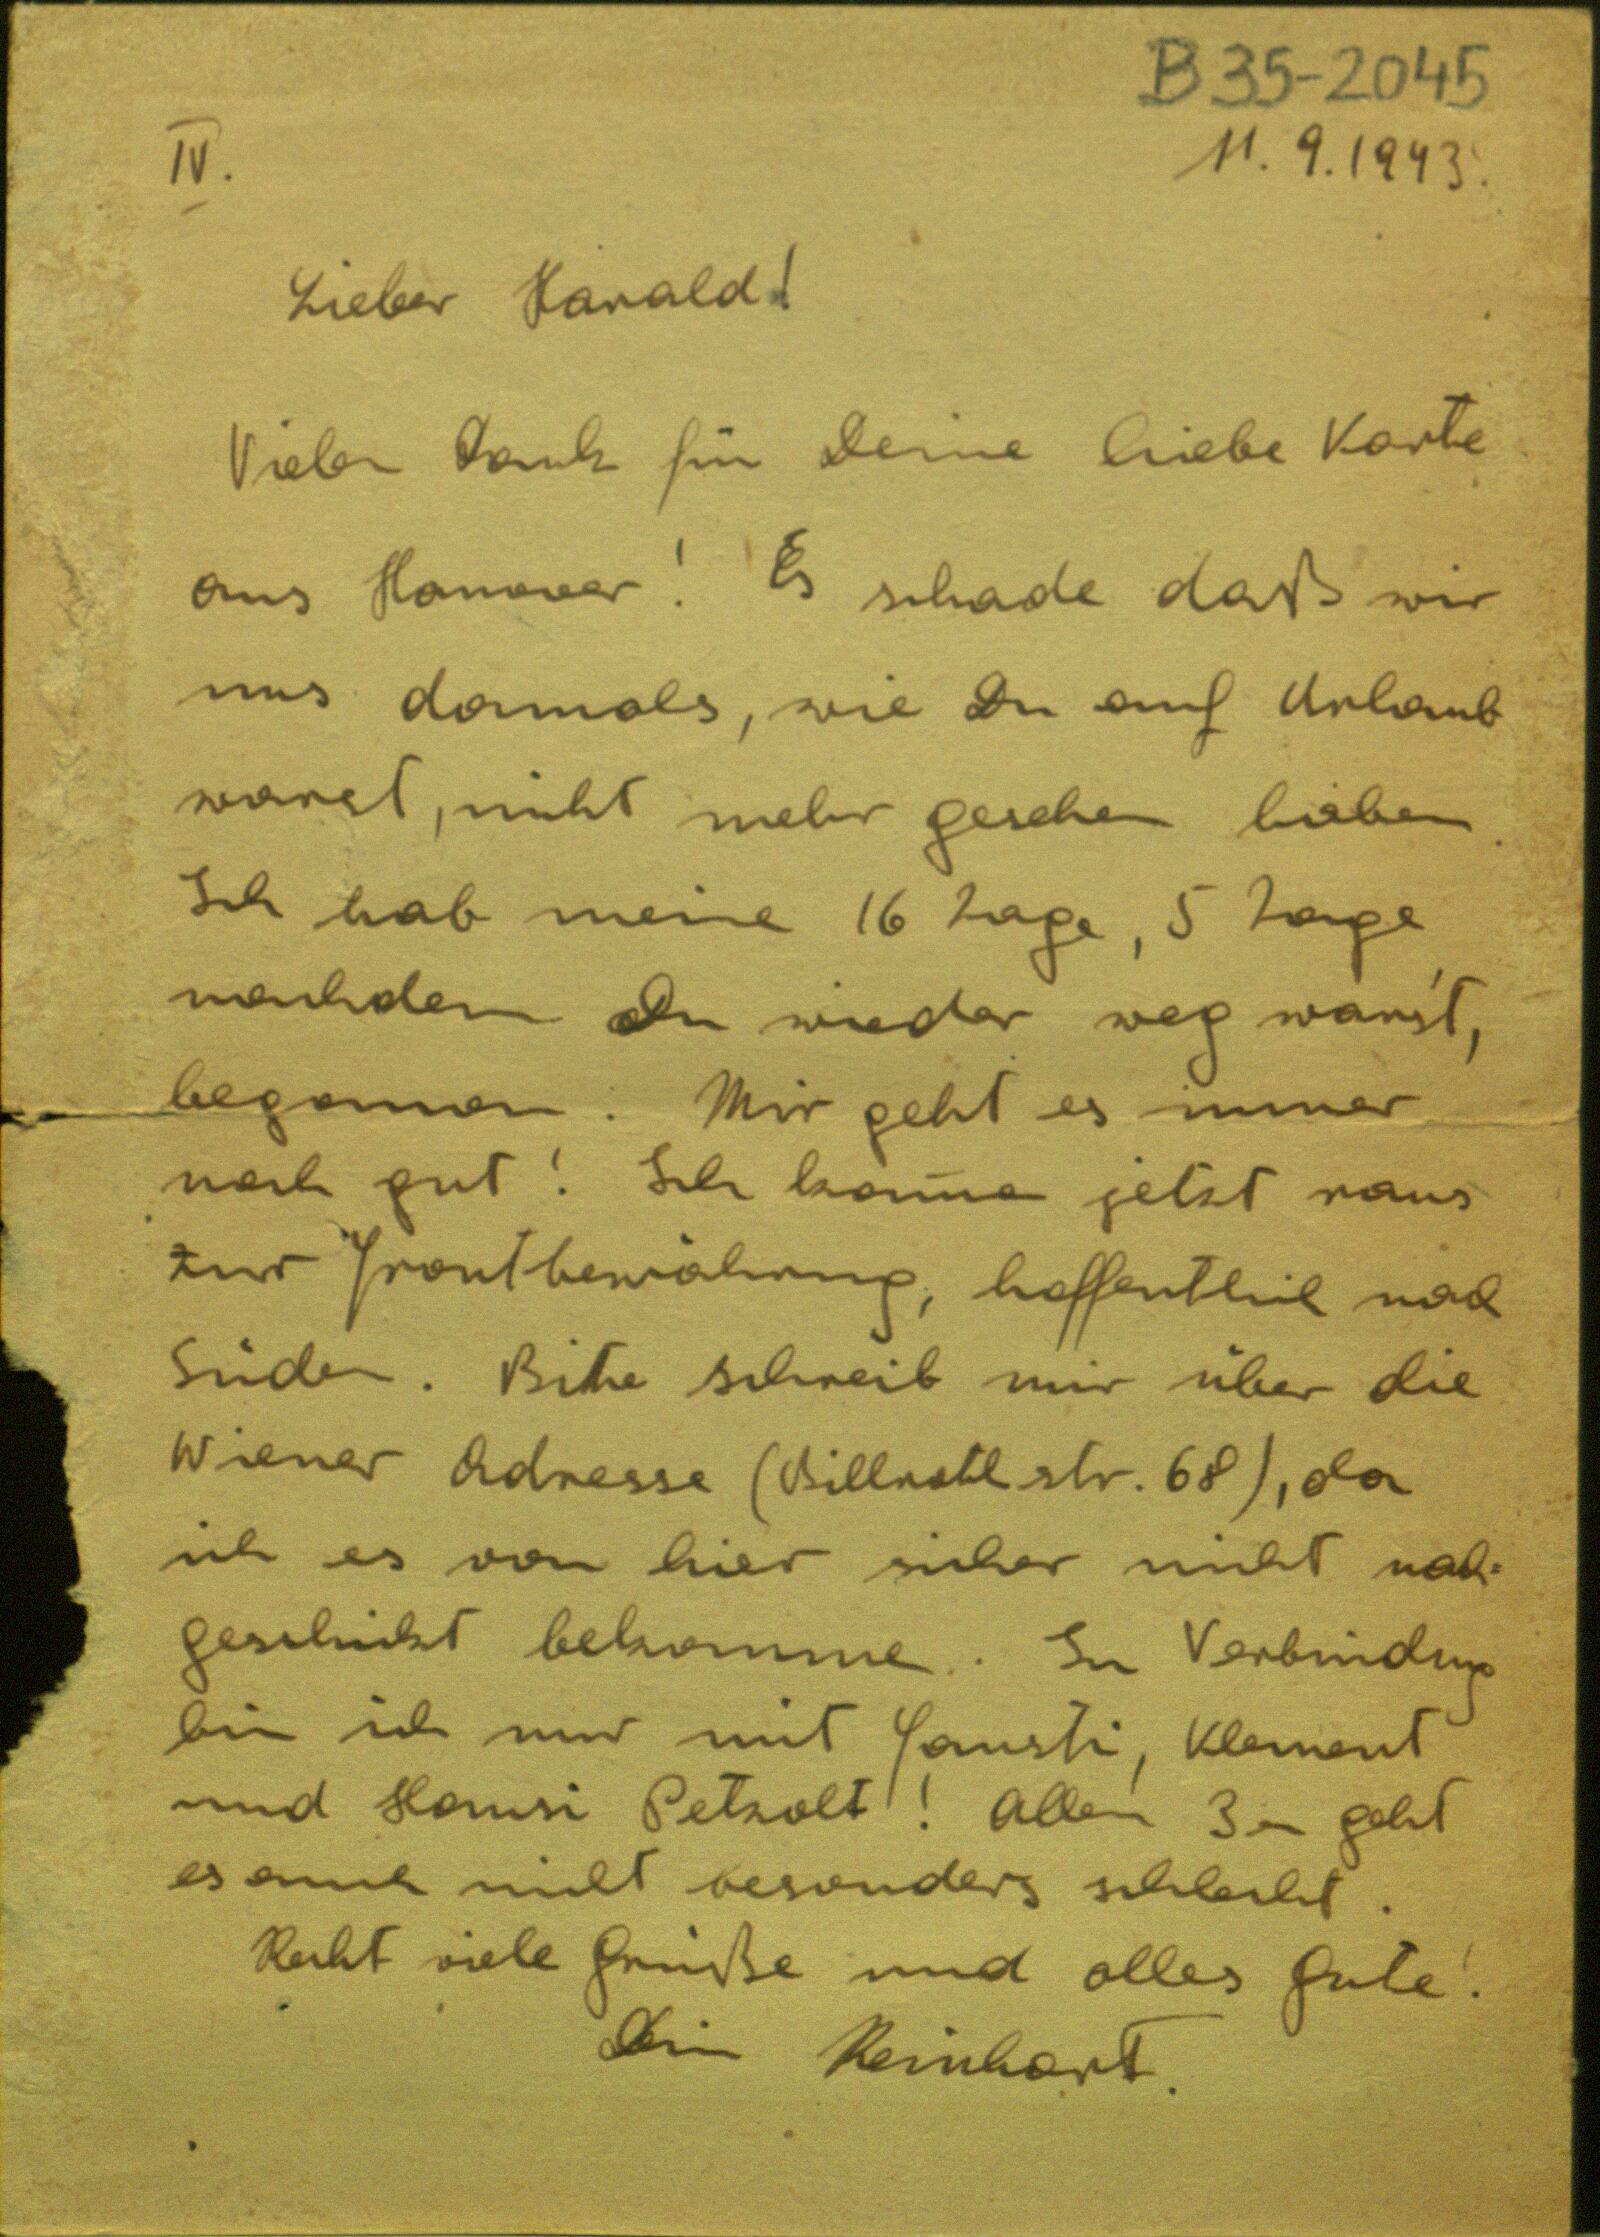 B35-2045
IV.
11. 9. 1943.
Lieber Harald!
Vielen Dank für Deine liebe Karte
aus Hanover! Es schade daß wir
uns damals, wie Du auf Urlaub
warst, nicht mehr gesehen haben.
Ich hab meine 16 Tage, 5 Tage
nachdem Du wieder weg warst,
begonnen. Mir geht es immer
noch gut! Ich kom̄e jetzt raus
zur Frontbewährung, hoffentlich nach
Süden. Bitte schreib mir über die
Wiener Adresse (Billrothstr. 68), da
ich es von hier sicher nicht nach-
geschickt bekomme. In Verbindung
bin ich nur mit Fausti, Klement
und Hansi Petzolt! Allen 3en geht
es auch nicht besonders schlecht.
Recht viele Grüße und alles Gute!
Dein Reinhart.